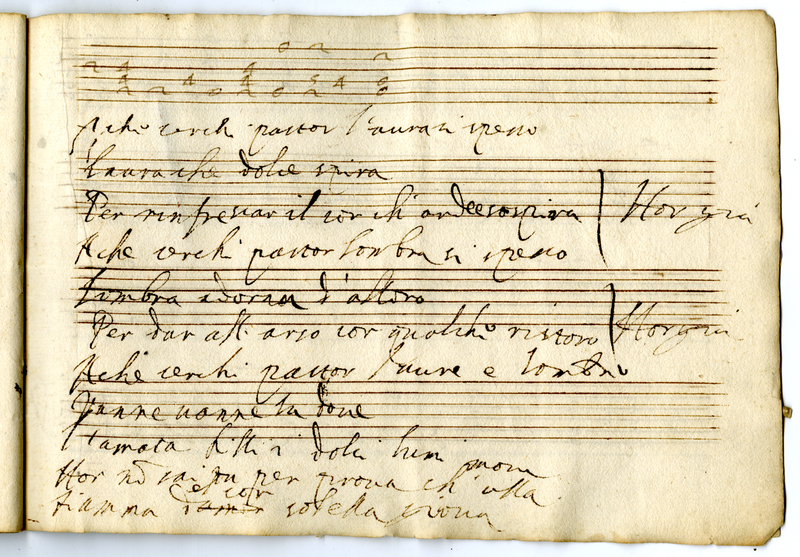 A che cerchi pastor l'aura si spesso
L'aura che dolce spira
Per rinfrescar il cor ch'arde e sospira Hor giù
A che cerchi pastor lombra si spesso
Lombra adorata d'alloro
Per dar all arso cor qualche ristoro Hor giù
A che cerchi pastor l'aure e lombre
Vanne vanne la dove
l'amata Filli i dolci lumi move
Hor nō sai tu per prova ch'alla
fiamma d'amor et cor sol ella giova